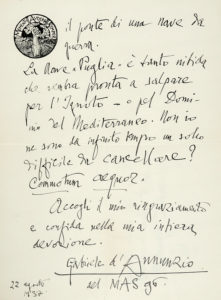 il ponte di una nave da
guerra.
La Nave "Puglia" è tanto nitida
che sembra pronta a salpare
per l'Ignoto – o pel Domi-
nio del Mediterraneo. Non vi
ne sono da infinito tempo un solco
difficile da cancellare?
Commotum aequor.
Accogli il mio ringraziamento
e confida nella mia intiera
devozione.
Gabriele d'Annunzio
del MAS 96.
22 agosto
1937